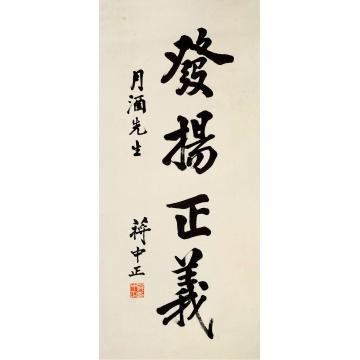 發揚正義
月涵先生
蔣中正